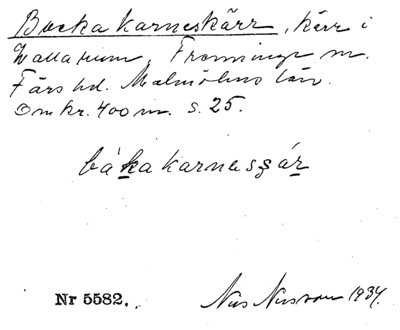 Bockakarneskärr, kärr i
Vallarum, Frenninge sn.
Färs hd. Malmöhus län.
Omkr. 400 m. s. 25.
båkakarnesšár
Nr 5582.
Nils Nilsson 1934.